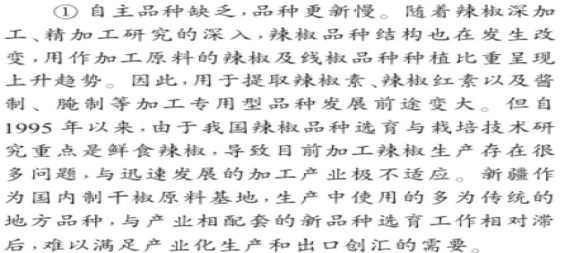 ① 自主品种缺乏,品种更新慢。随着辣椒深加
工、精加工研究的深入,辣椒品种结构也在发生改
变,用作加工原料的辣椒及线椒品种种植比重呈现
上升趋势。因此,用于提取辣椒素、辣椒红素以及酱
制、腌制等加工专用型品种发展前途变大。但自
1995 年以来,由于我国辣椒品种选育与栽培技术研
究重点是鲜食辣椒,导致目前加工辣椒生产存在很
多问题,与迅速发展的加工产业极不适应。新疆作
为国内制干椒原料基地,生产中使用的多为传统的
地方品种,与产业相配套的新品种选育工作相对滞
后,难以满足产业化生产和出口创汇的需要。